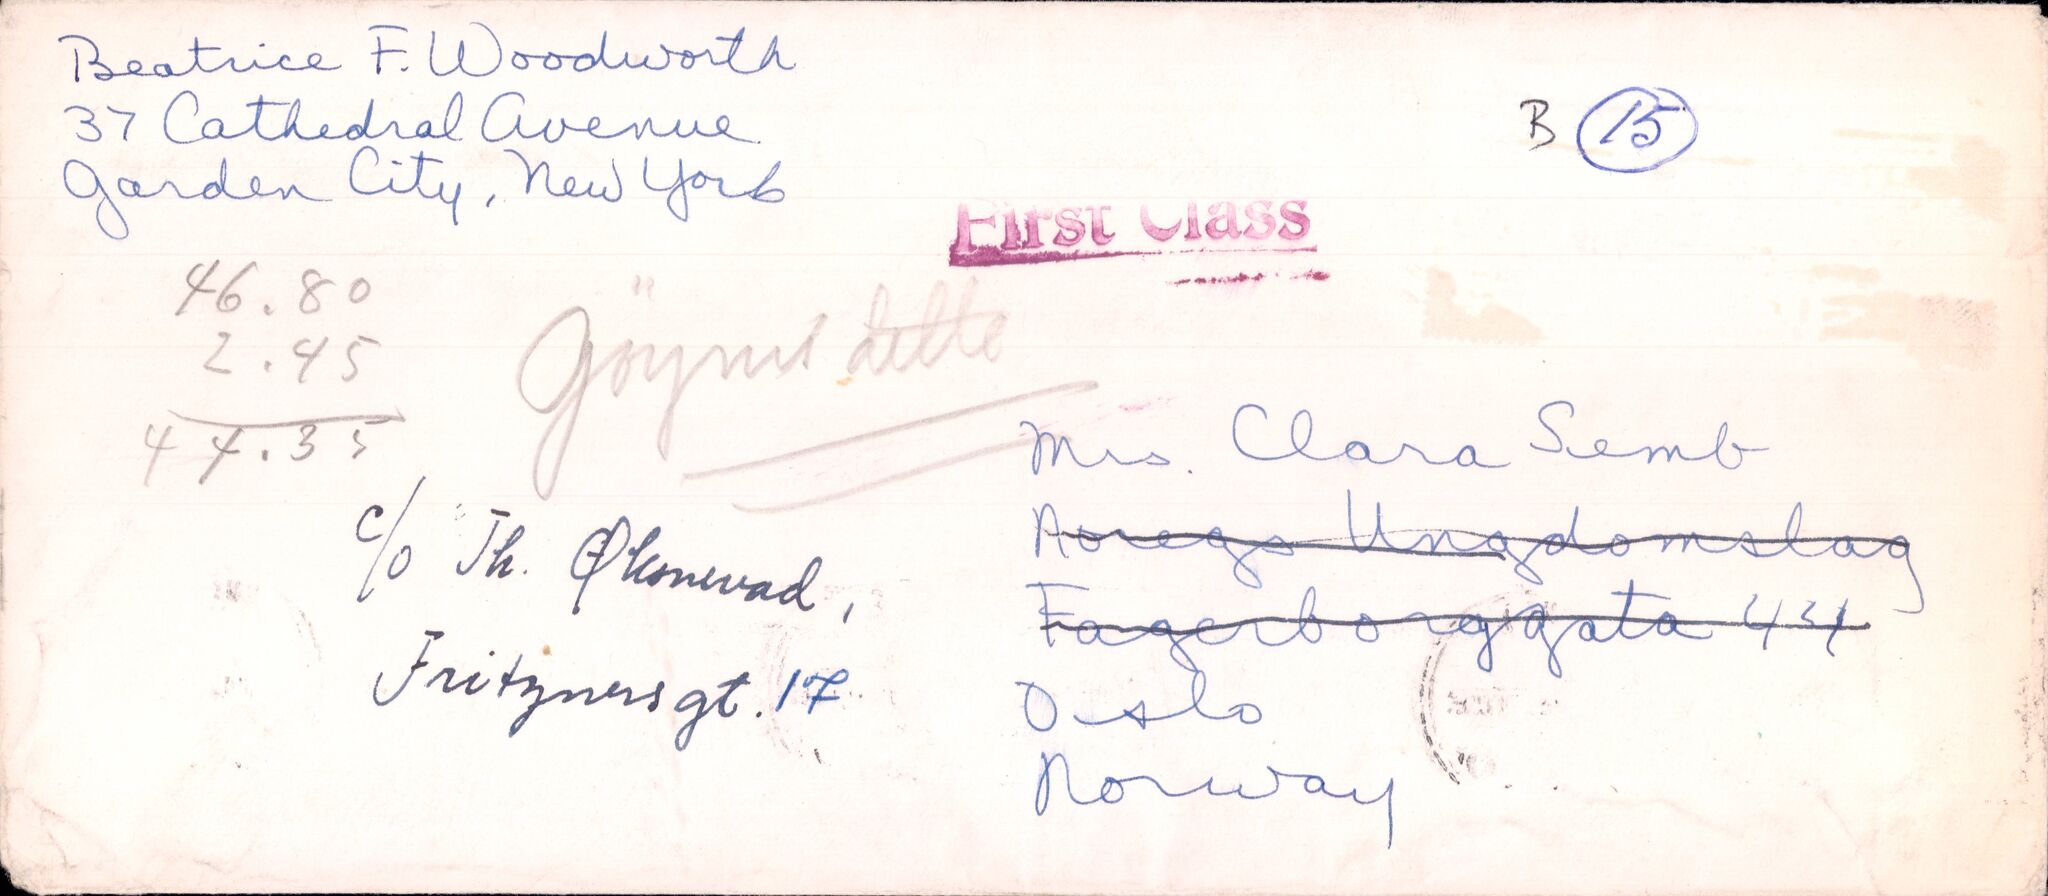 Beatrice F. Woodworth
37 Cathedral Avenue
Garden City, New York
B 15
First Class
46.80
2.45
44.35
Göyms dette
Mrs. Clara Semb
Noregs Ungdomslag
Fagerborggata
Oslo
Norway
c/o Th. Økonevad,
Fritzners gt. 17